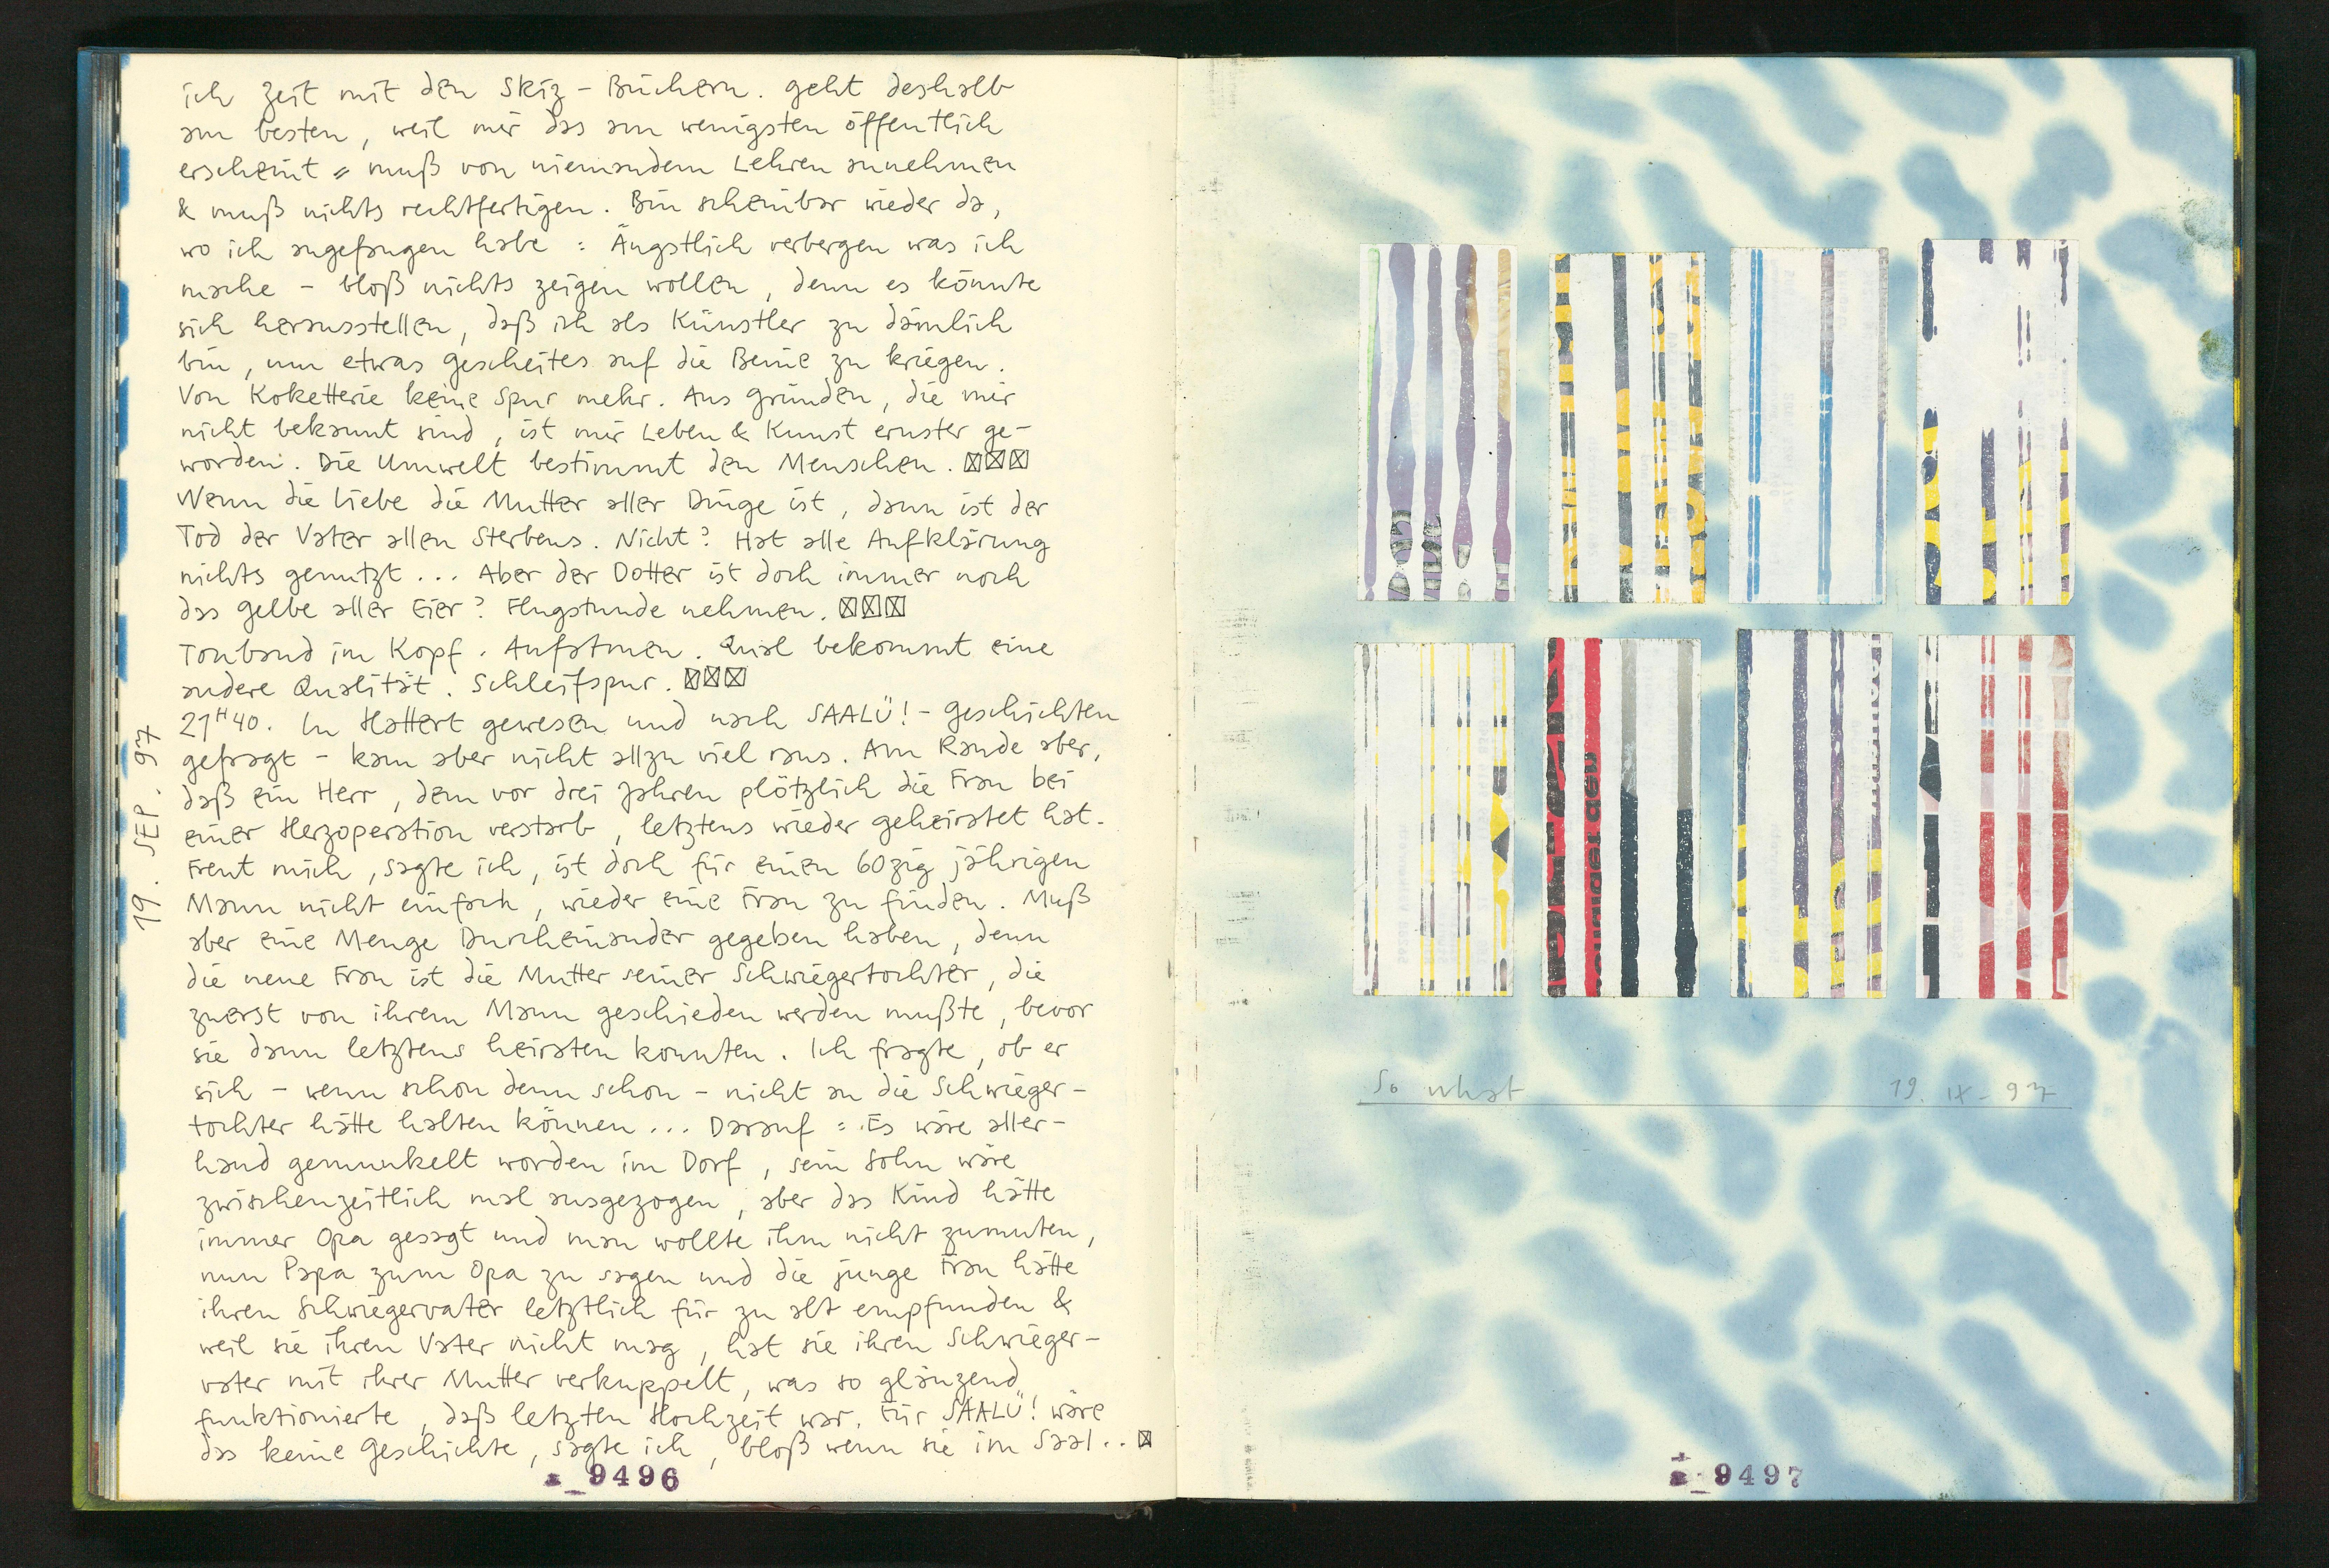 ich Zeit mit den Skiz-Büchern. geht deshalb
am besten, weil mir das am wenigsten öffentlich
erscheint = muß von niemandem Lehren annehmen
& muß nichts rechtfertigen. Bin scheinbar wieder da,
wo ich angefangen habe : Ängstlich verbergen was ich
mache - bloß nichts zeigen wollen, denn es könnte
sich herausstellen, daß ich als Künstler zu dämlich
bin, um etwas gescheites auf die Beine zu kriegen.
Von Koketterie keine Spur mehr. Aus Gründen, die mir
nicht bekannt sind, ist mir Leben & Kunst ernster ge-
worden. Die Umwelt bestimmt den Menschen. ☒☒☒
Wenn die Liebe die Mutter aller Dinge ist, dann ist der
Tod der Vater allen Sterbens. Nicht? Hat alle Aufklärung
nichts genutzt... Aber der Dotter ist doch immer noch
das gelbe aller Eier? Flugstunde nehmen. ☒☒☒
Tonband im Kopf. Aufatmen. Qual bekommt eine
andere Qualität. Schleifspur. ☒☒☒
19. SEP. 97
21H40. In Hattert gewesen und nach SAALÜ!-Geschichten
gefragt - kam aber nicht allzu viel raus. Am Rande aber,
daß ein Herr, dem vor drei Jahren plötzlich die Frau bei
einer Herzoperation verstarb, letztens wieder geheiratet hat.
Freut mich, sagte ich, ist doch für einen 60zig jährigen
Mann nicht einfach, wieder eine Frau zu finden. Muß
aber eine Menge Durcheinander gegeben haben, denn
die neue Frau ist die Mutter seiner Schwiegertochter, die
zuerst von ihrem Mann geschieden werden mußte, bevor
sie dann letztens heiraten konnten. Ich fragte, ob er
sich - wenn schon denn schon - nicht an die Schwieger-
tochter hätte halten können... Darauf : Es wäre aller-
hand gemunkelt worden im Dorf, sein Sohn wäre
zwischenzeitlich mal ausgezogen, aber das Kind hätte
immer Opa gesagt und man wollte ihm nicht zumuten,
nun Papa zum Opa zu sagen und die junge Frau hätte
ihren Schwiegervater letztlich für zu alt empfunden &
weil sie ihren Vater nicht mag, hat sie ihren Schwieger-
vater mit ihrer Mutter verkuppelt, was so glänzend
funktionierte, daß letzten Hochzeit war. Für SAALÜ! wäre
das keine Geschichte, sagte ich, bloß wenn sie im Saal.. ☒
9496
So what 19. IX - 97
9497